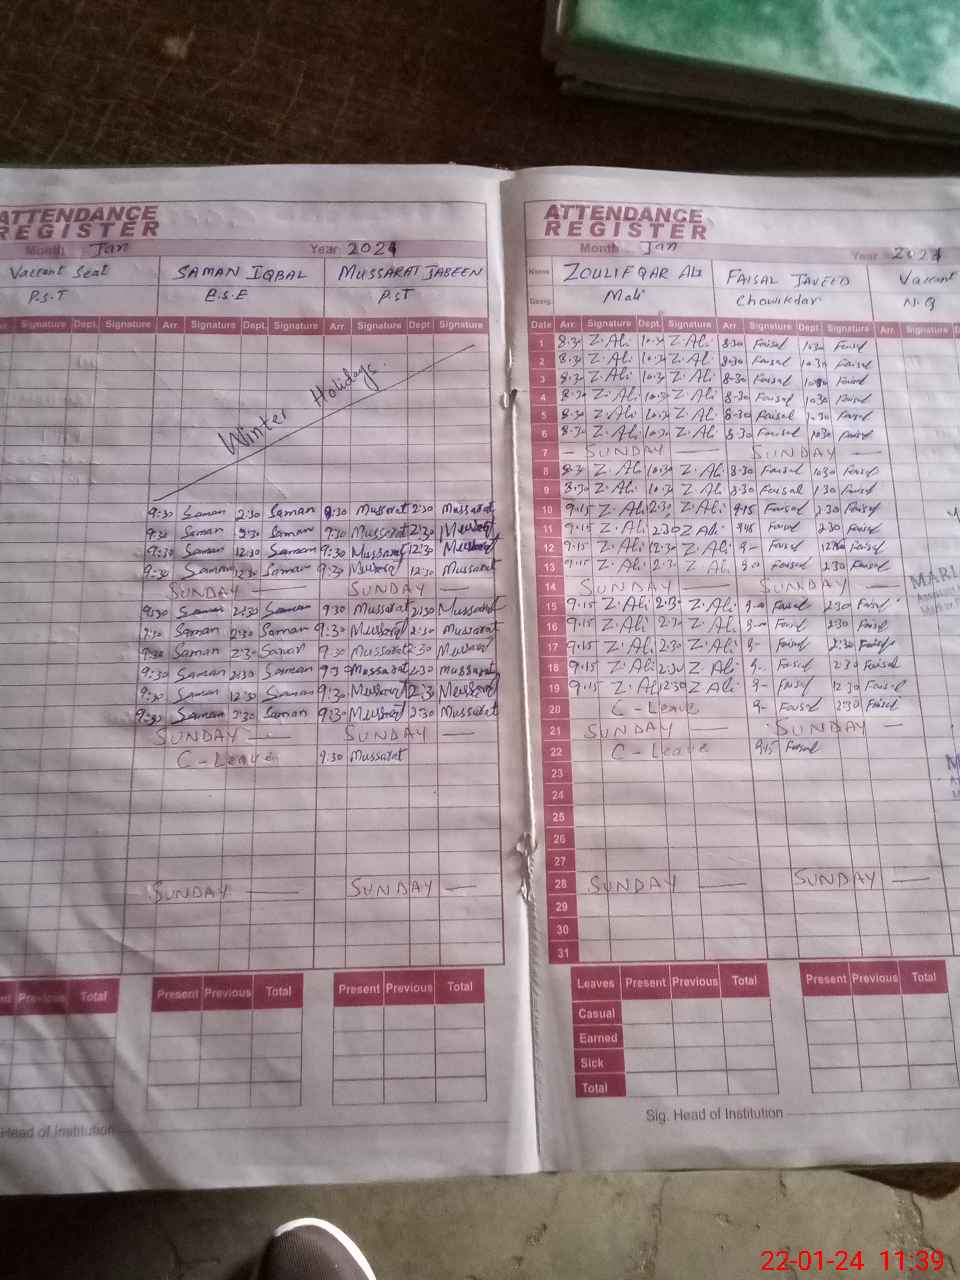 ATTENDANCE
REGISTER
Month Jan Year 2024
Vaccant Seat SAMAN IQBAL MUSSARAT JABEEN
P.S.T E.S.E PST
Signature Dept. Signature Arr. Signature Dept. Signature Arr. Signature Dept Signature
Winter Holidays.
9:30 Saman 2:30 Saman 9:30 Mussarat 2:30 Mussarat
9:30 Saman Saman 9:30 Mussarat 2:30
9:30 Saman 12:30 Saman 9:30 Mussarat 12:30
9:30 Saman 12:30 Saman 9:30 Mussarat 12:30 Mussarat
SUNDAY SUNDAY
9:30 Saman 2:30 Saman 9:30 Mussarat 2:30 Mussarat
9:30 Saman 2:30 Saman 9:30 Mussarat 2:30 Mussarat
9:30 Saman 2:30 Saman 9:30 Mussarat 2:30 Mussarat
9:30 Saman 2:30 Saman Mussarat 2:30 mussarat
9:30 Saman 12:30 Saman 9:30 Mussarat Mussarat
9:30 Saman 2:30 Saman Mussarat 2:30 Mussarat
SUNDAY SUNDAY
C-Leave 9:30 Mussarat
SUNDAY SUNDAY
Previous Total Present Previous Total Present Previous Total
Head of Institution
ATTENDANCE
REGISTER
Month Jan Year 2024
Name ZOULIFQAR Ali FAISAL JAVEED Vaccant
Desig. Mali Chowkidar N.Q
Date Arr. Signature Dept. Signature Arr. Signature Dept. Signature Arr. Signature
1 8.30 Z.Ali 10.30 Z.Ali 8.30 Faisal 10.30 Faisal
2 8.30 Z.Ali 10.30 Z.Ali 8.30 Faisal 10.30 Faisal
3 8.30 Z.Ali 10.30 Z.Ali 8-30 Faisal Faisal
4 8.30 Z.Ali 10.30 Z.Ali 8-30 Faisal 10.30 Faisal
5 8.30 Z.Ali 10.30 Z.Ali 8-30 Faisal 10.30 Faisal
6 8.30 Z.Ali 10.30 Z.Ali 8-30 Faisal 10.30 Faisal
7 SUNDAY SUNDAY
8 8.30 Z.Ali 10.30 Z.Ali 8-30 Faisal 10.30 Faisal
9 8.30 Z.Ali 10.30 Z.Ali 8.30 Faisal Faisal
10 9.15 Z.Ali 2.30 Z.Ali 9.15 Faisal 2.30 Faisal
11 9.15 Z.Ali 2.30 Z.Ali Faisal 2.30 Faisal
12 9.15 Z.Ali 12.30 Z.Ali Faisal Faisal
13 9.15 Z.Ali Z.Ali Faisal Faisal
14 SUNDAY SUNDAY
15 9.15 Z.Ali 2.30 Z.Ali Faisal 2:30 Faisal
16 9.15 Z.Ali 2.30 Z.Ali Faisal 2:30 Faisal
17 9.15 Z.Ali 2.30 Z.Ali Faisal 2:30 Faisal
18 9.15 Z.Ali 2.30 Z.Ali Faisal 2:30 Faisal
19 9.15 Z.Ali 12.30 Z.Ali Faisal 12:30 Faisal
20 C-Leave Faisal 2:30 Faisal
21 SUNDAY SUNDAY
22 C-Leave 9.15 Faisal
23
24
25
26
27
28 SUNDAY SUNDAY
29
30
31
Leaves Present Previous Total Present Previous Total
Casual
Earned
Sick
Total
Sig. Head of Institution
22-01-24 11:39